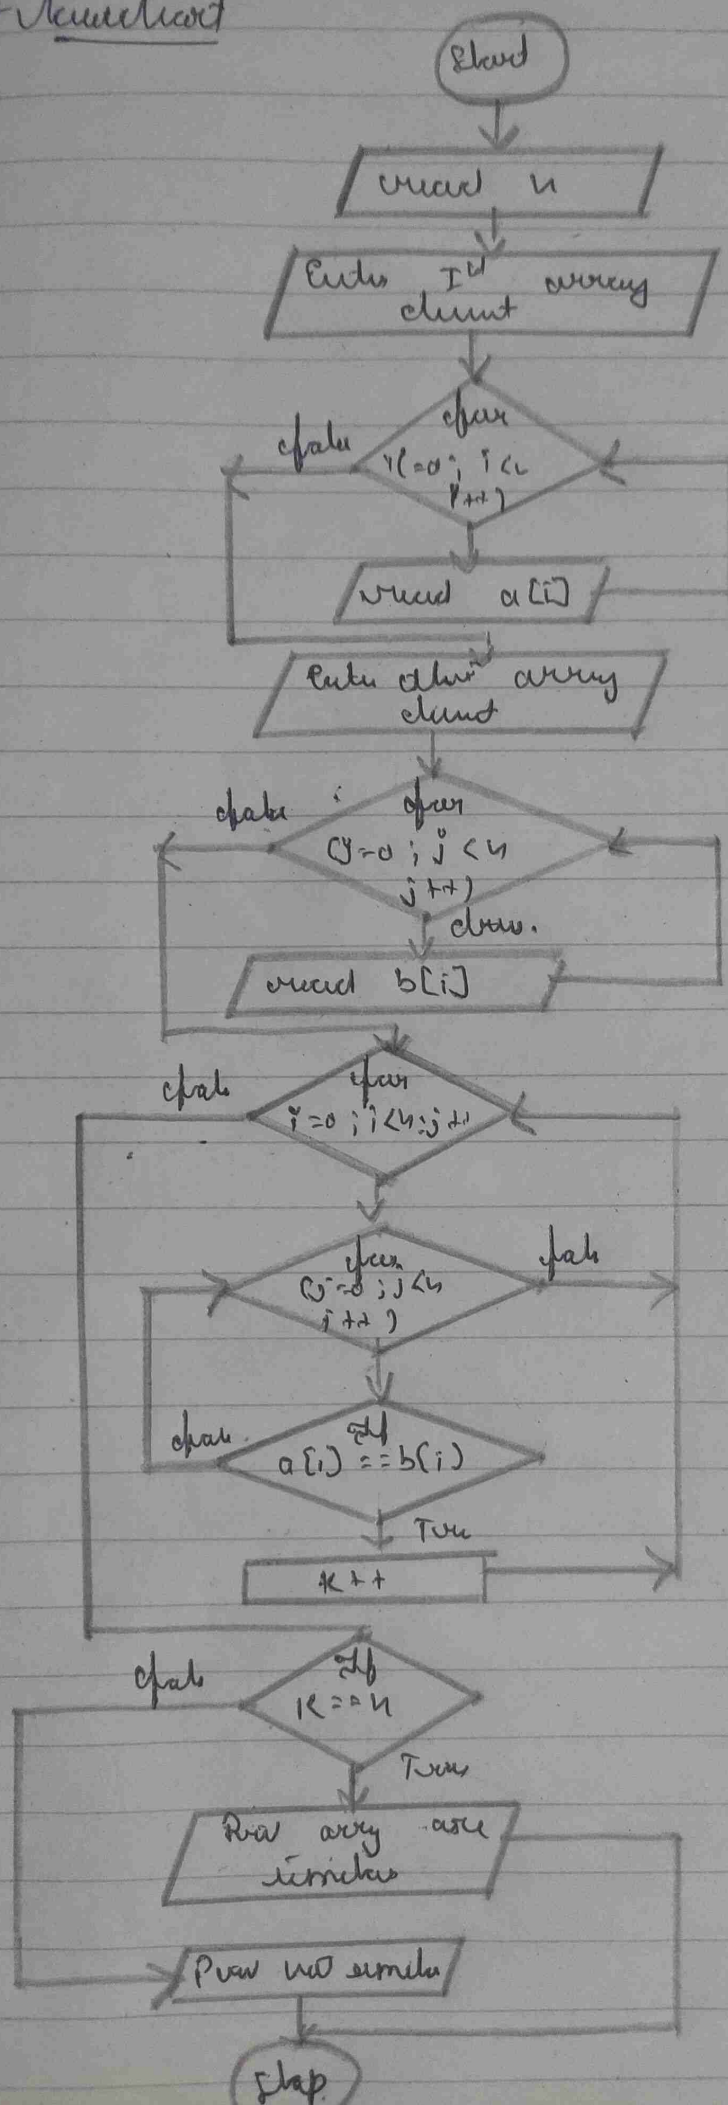 Flowchart
Start
read n
Enter Ist array
element
for
i(=0; i<n
i++)
false
read a[i]
Enter other array
element
for
(j=0; j<n
j++)
false
true.
read b[i]
for
i=0; i<n; j++
false
for
(j=0; j<n
j++)
false
If
a[i]==b[i]
false
True
K++
If
K==n
false
True
Print arry are
similar
Print not similar
Stop